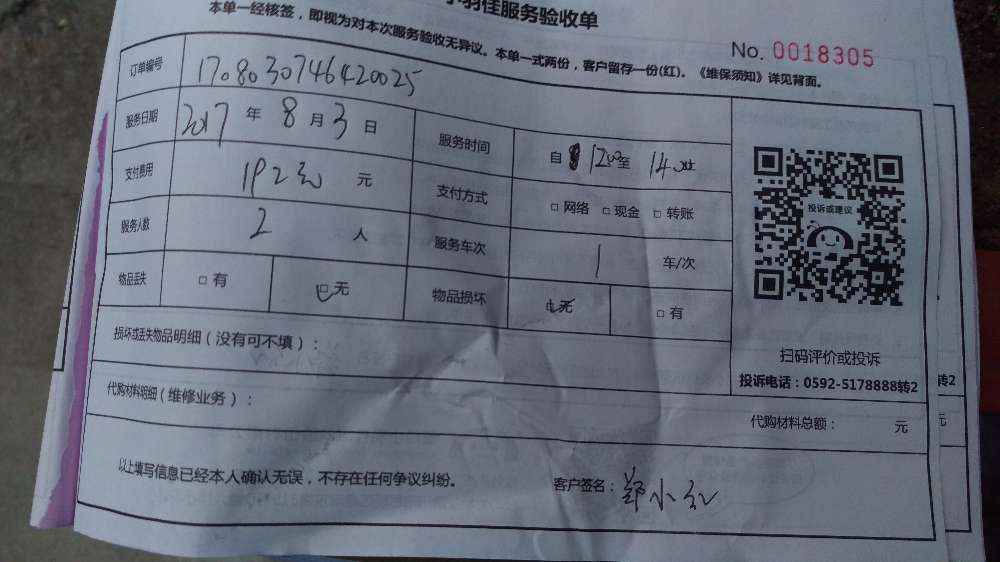 羽佳服务验收单
本单一经核签，即视为对本次服务验收无异议。本单一式两份，客户留存一份(红)。《维保须知》详见背面。
No. 0018305
订单编号 1708030746420025
服务日期 2017 年 8 月 3 日 服务时间 自 12:00 至 14:00
支付费用 192 元 支付方式 □ 网络 □ 现金 □ 转账
服务人数 2 人 服务车次 1 车/次
物品丢失 □ 有 □ 无 物品损坏 □ 无 □ 有
投诉或建议
损坏或丢失物品明细（没有可不填）：
扫码评价或投诉
投诉电话：0592-5178888转2
转2
代购材料明细（维修业务）： 代购材料总额： 元
元
以上填写信息已经本人确认无误，不存在任何争议纠纷。 客户签名： 郑小红